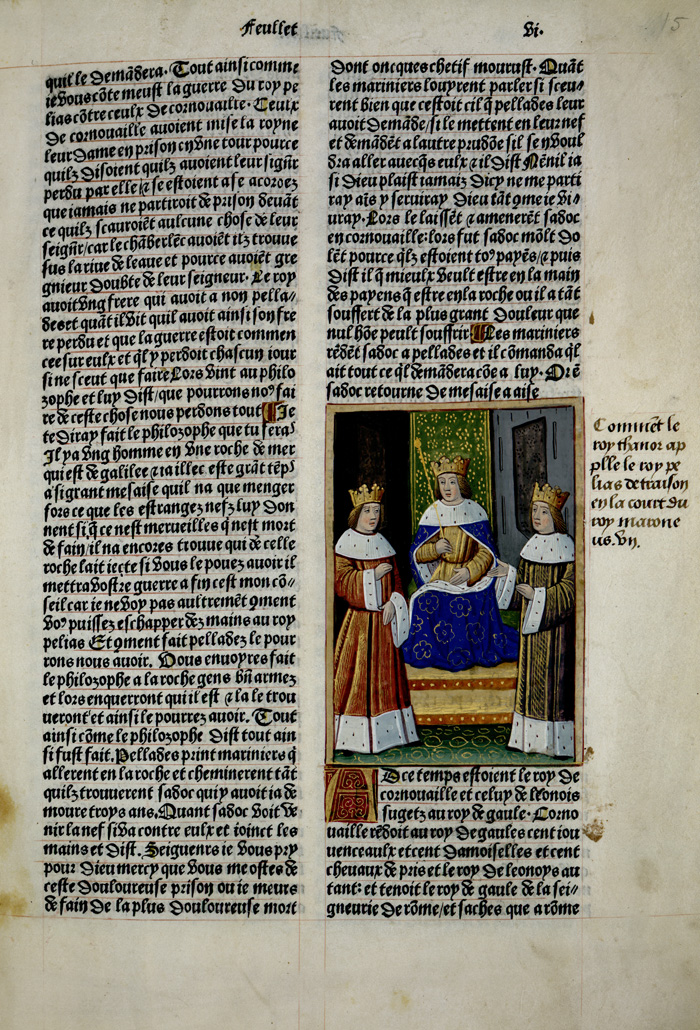 Feuillet
vi.
15
quil le demādera. Tout ainsi comme
ie vous cōte meust la guerre du roy pe
lias cōtre ceulx de cornouaille. Ceulx
de cornouaille auoient mise la royne
leur dame en prison en vne tour pource
quilz disoient quilz auoient leur signr̄
perdu par elle / ⁊ se estoient a se acordez
que iamais ne partiroit de prison deuāt
ce quilz scauroiēt aulcune chose de leur
seignr̄ / car le chāberlēc auoiēt ilz trouue
sus la riue de leaue et pource auoiēt gre
gnieur doubte de leur seigneur. Le roy
auoit vng frere qui auoit a non pella/
des et quāt il vit quil auoit ainsi son fre
re perdu et que la guerre estoit commen
cee sur eulx et q̄l y perdoit chascun iour
si ne sceut que faire Lors vint au philo
zophe et luy dist / que pourrons noꝰ fai
re de ceste chose nous perdons tout Ie
te diray fait le philozophe que tu feras
Il ya vng homme en vne roche de mer
qui est de galilee ⁊ a illec este grāt tēps
a si grant mesaise quil na que menger
fors ce que les estrangez nefz luy don
nent si q̄ ce nest merueilles q̄ nest mort
de fain / il na encores trouue qui de celle
roche lait iecte si vous le pouez auoir il
mettra vostre guerre a fin cest mon cō/
seil car ie ne voy pas aultremēt ꝯment
voꝰ puissez eschapper dez mains au roy
pelias Et ꝯment fait pelladez le pour
rons nous auoir. Vous enuoyres fait
le philozophe a la roche gens bn̄ armez
et lors enquerront qui il est ⁊ la le trou
ueront et ainsi le pourrez auoir. Tout
ainsi cōme le philozophe dist tout ain
si fust fait. Pellades print mariniers q̄
allerent en la roche et cheminerent tāt
quilz trouuerent sadoc qui y auoit ia de
moure troys ans. Quant sadoc voit ve
nir la nef si va contre eulx et ioinct les
mains et dist. Seiguenrs ie vous pry
pour dieu mercy que vous me ostes de
ceste douloureuse prison ou ie meurs
de fain de la plus douloureuse mort
dont oncques chetif mourust. Quāt
les mariniers louyrent parler si sceu/
rent bien que cestoit cil q̄ pellades leur
auoit demāde / si le mettent en leur nef
et demādēt a lautre prudōe sil se y voul
dra aller auecq̄s eulx ⁊ il dist Nēnil ia
si dieu plaist iamaiz dicy ne me parti
ray aīs y seruiray dieu tāt ꝯme ie vi/
uray. Lors le laissēt ⁊ amenerēt sadoc
en cornouaille: lors fut sadoc mōlt do
lēt pource q̄lz estoient toꝰ payēs / ⁊ puis
dist il q̄ mieulx veult estre en la main
des payens q̄ estre en la roche ou il a tāt
souffert de la plus grant douleur que
nul hōe peult souffrir Les mariniers
rēdēt sadoc a pellades et il cōmanda q̄l
ait tout ce q̄l demādera cōe a luy. Or ē
sadoc retourne de mesaise a aise
Comment le
roy thanor ap
plle le roy pe
lias de traison
en la court du
roy marone
us. vii.
A Dce temps estoient le roy de
cornouaille et celuy de leonois
sugetz au roy de gaule. Corno
uaille rēdoit au roy de gaules cent iou
uenceaulx et cent damoiselles et cent
cheuaux de pris et le roy de leonoys au
tant: et tenoit le roy de gaule de la sei/
gneurie de rōme / et saches que a rōme